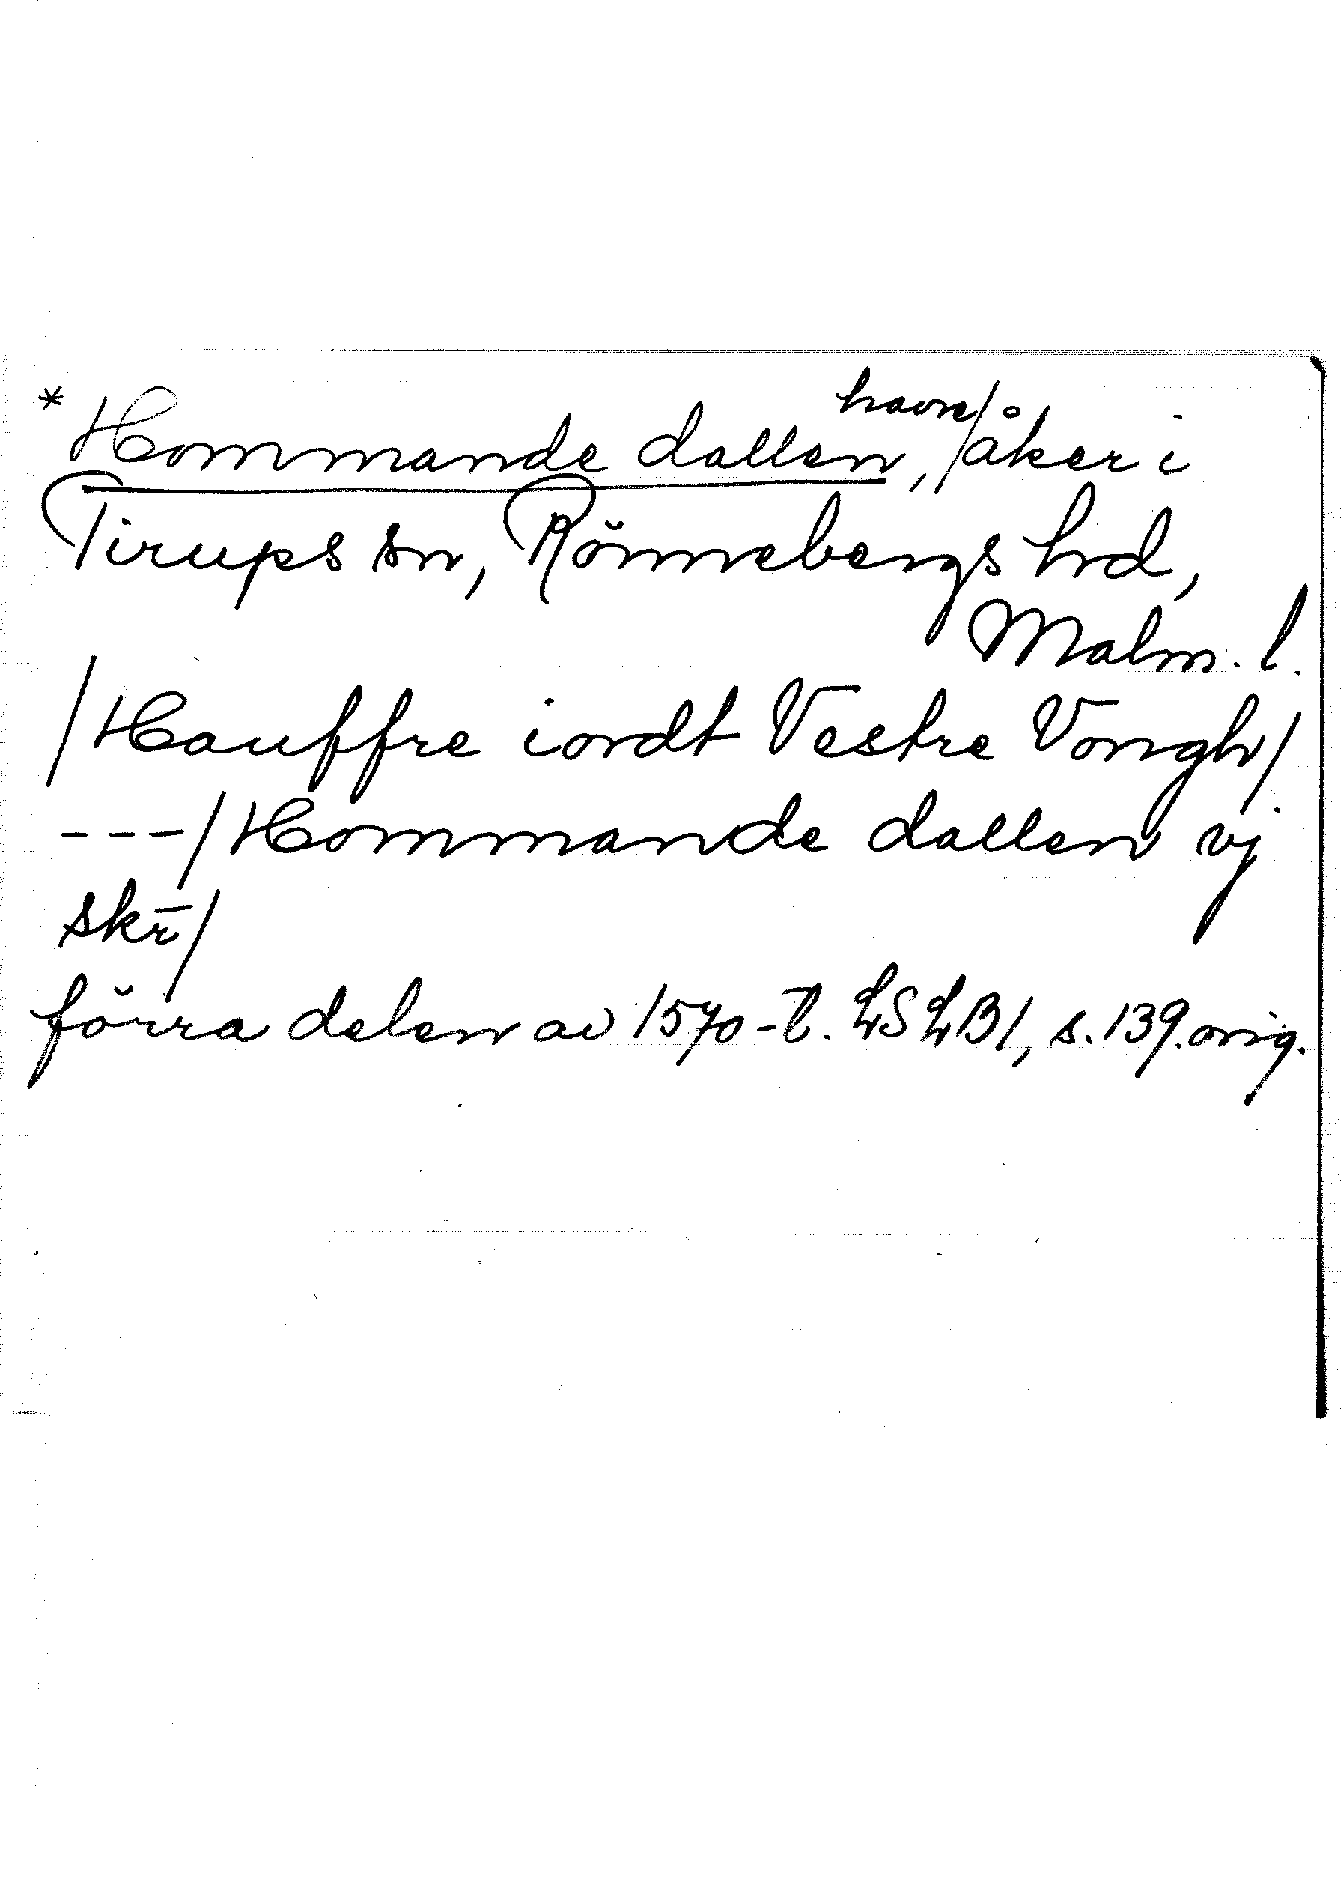 * Hommande dallen, havre/åker i
Tirups sn, Rönnebergs hd,
Malm. l.
/Hauffre iordt Vestre Vongh/
---/Hommande dallen vj
skr̄/
förra delen av 1570-t. LSLB1, s. 139. orig.